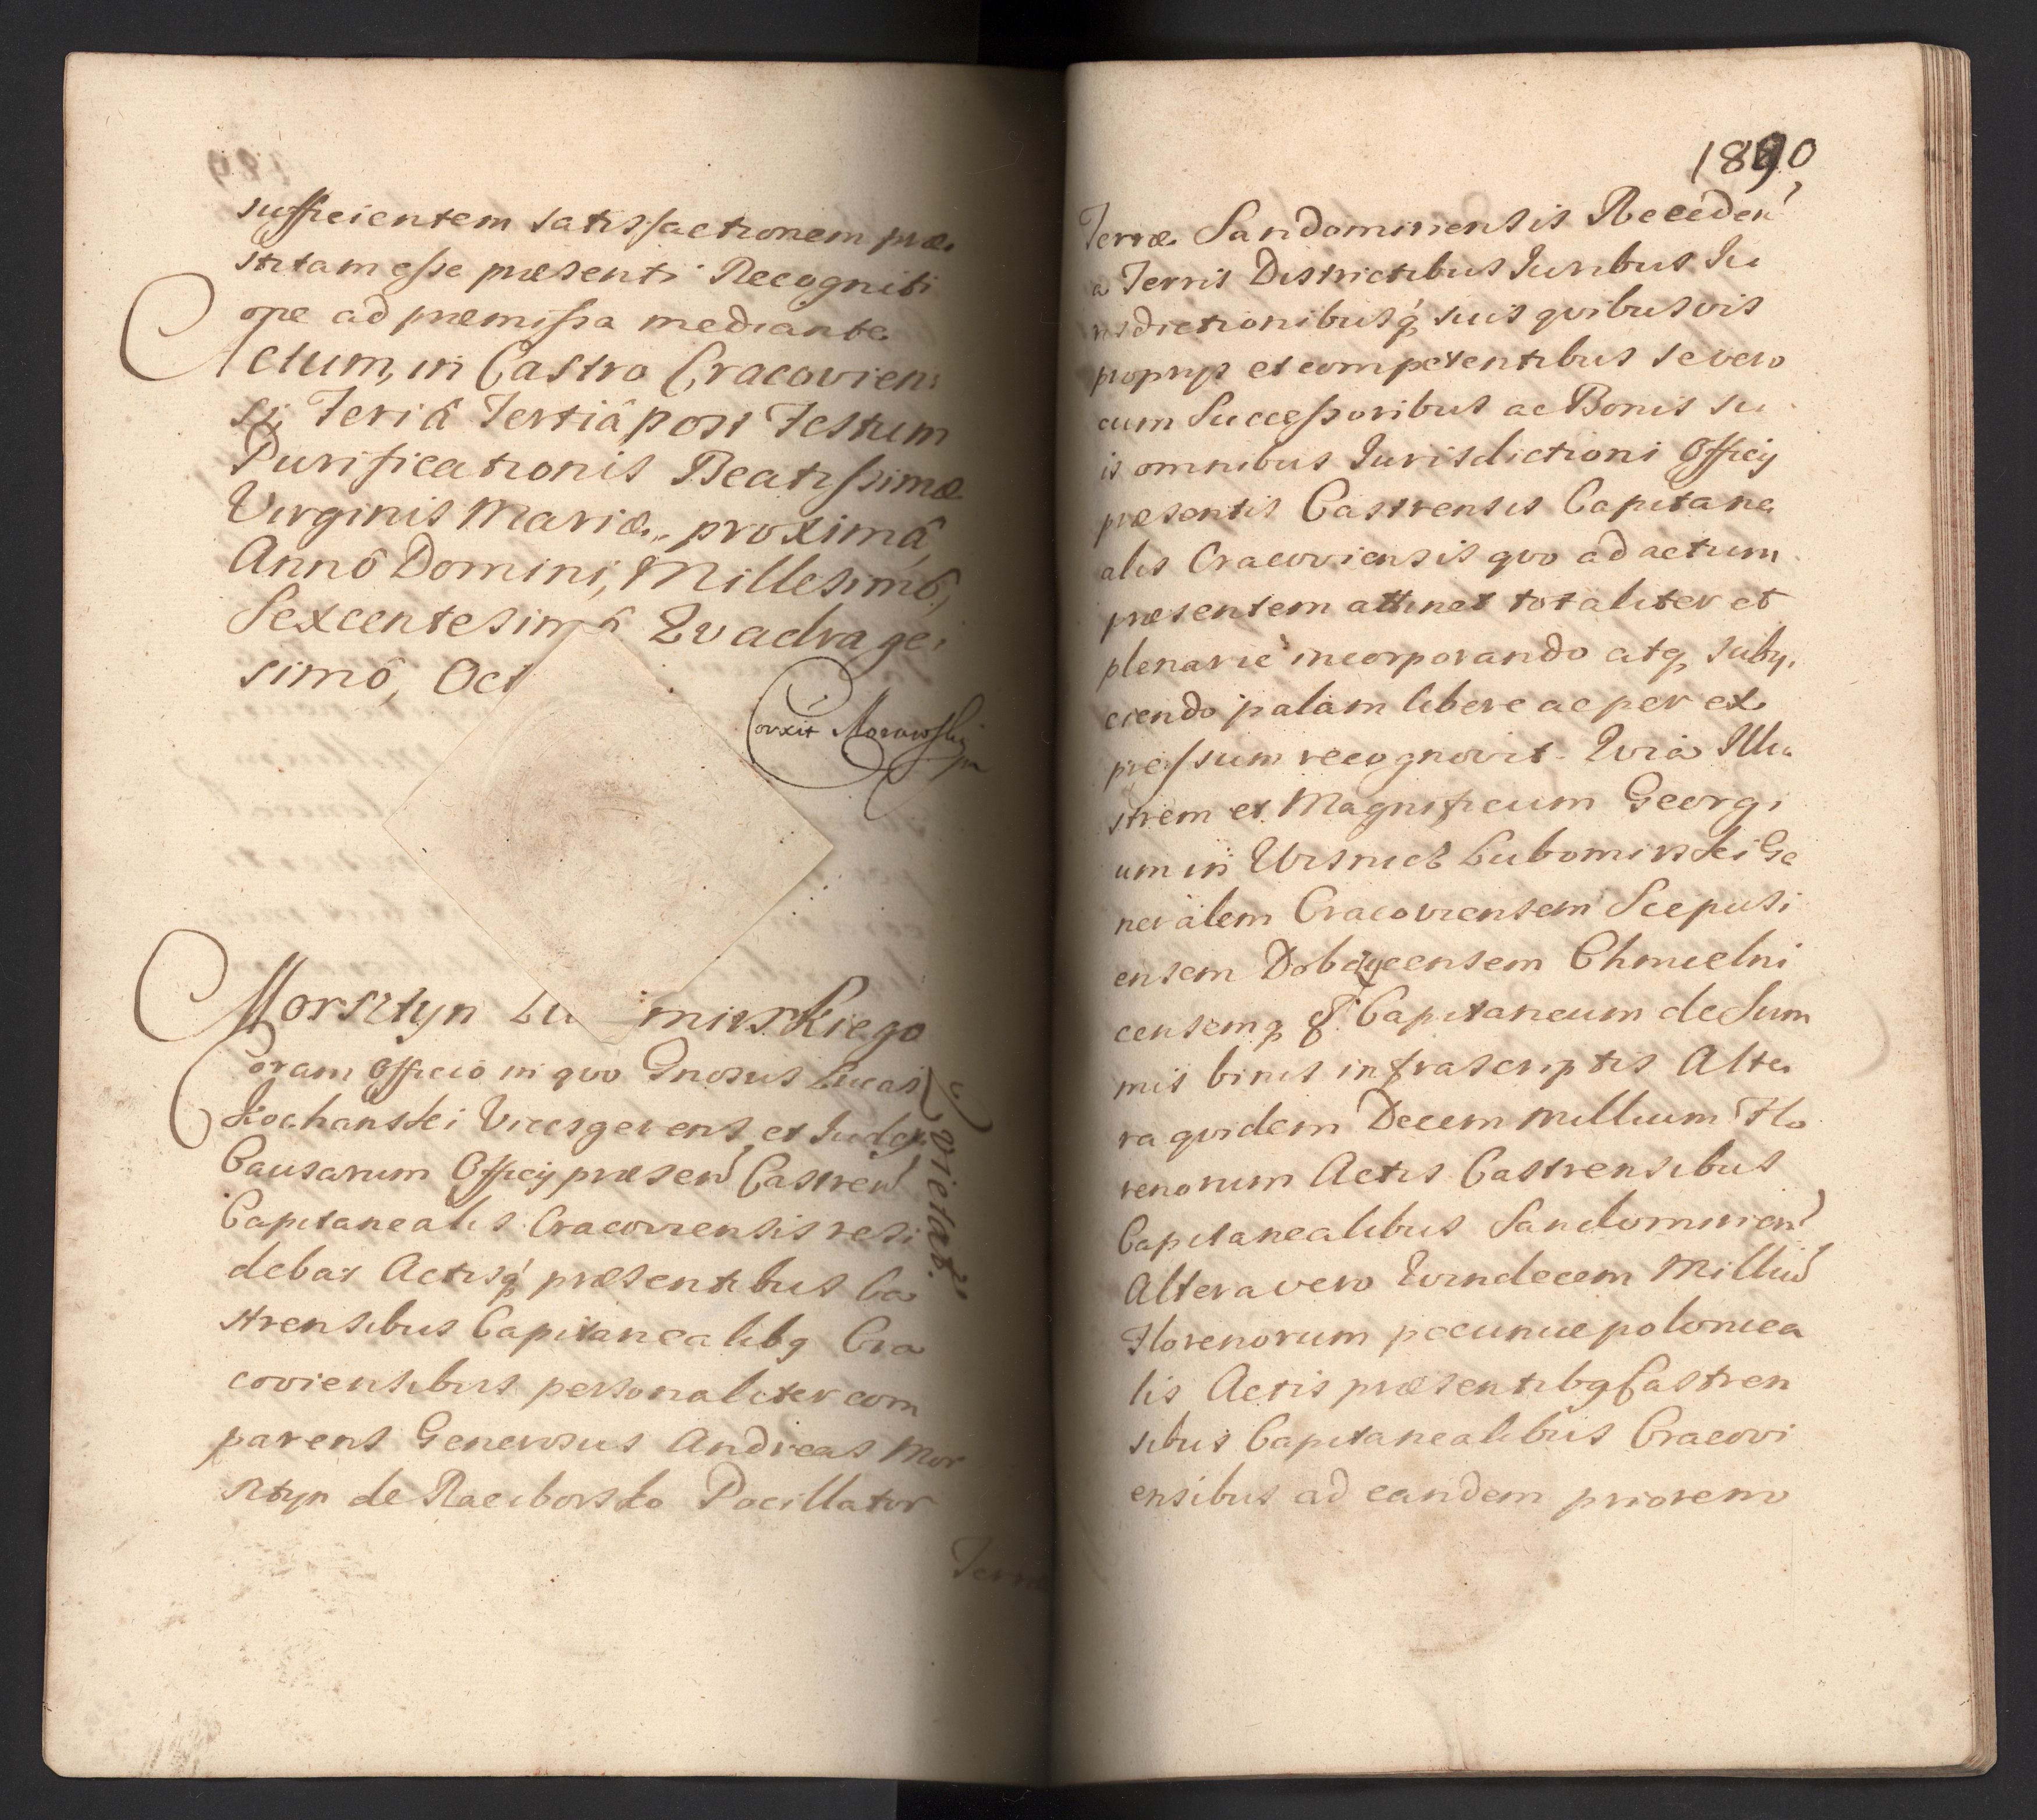 sufficientem satisfactionem præ
stitam eſse præsenti Recogniti
one ad præmiſsa mediante
Actum, in Castro Cracovien
si, Feriâ Tertiâ post Festum
Purificationis Beatiſsimæ
Virginis Mariæ, proximâ,
Annô Domini, Millesimô,
Sexcentesimô Quadrage
simô, Oct
Corxit Morawski
mp
Morsztyn Lu mirskiego
Coram Officio in quo Gnosus Lucas
Kochanski Vicesgerens et Judex
Causarum Officij præsen Castren
Capitanealis Cracoviensis resi
debat Actisq præsentibus Ca
strensibus Capitanealibq Cra
coviensibus personaliter com
parens Generosus Andreas Mor
sztyn de Raciborsko Pocillator
Terræ
Qvietat.
1890
Terræ Sandomiriensis Receden
a Terris Districtibus Juribus Ju
risdictionibusq suis qvibusvis
proprijs et competentibus se vero
cum Succeſsoribus ac Bonis su
is omnibus Jurisdictioni Officij
præsentis Castrensis Capitane
alis Cracoviensis qvo ad actum
præsentem attinet totaliter et
plenarie incorporando atq subij
ciendo palam libere ac per ex
preſsum recognovit. Qvia Illu
strem et Magnificum Georgi
um in Wisnicz Lubomirski Ge
neralem Cracoviensem Scepusi
ensem Dobczycensem Chmielni
censemq &. Capitaneum de Sum
mis binis infrascriptis Alte
ra qvidem Decem Millium Flo
renorum Actis Castrensibus
Capitanealibus Sandomirien
Altera vero Qvindecem Milliu
Florenorum pecuniæ polonica
lis Actis præsentibq Castren
sibus Capitanealibus Cracovi
ensibus ad eandem priorem